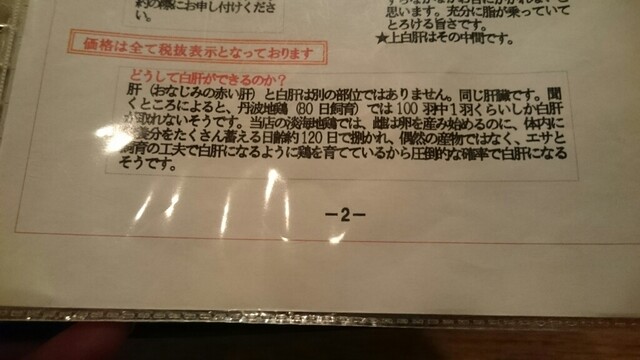 約の際にお申し付けくださ
い。
思います。充分に脂が乗っていて
とろける旨さです。
★上白肝はその中間です。
価格は全て税抜表示となっております
どうして白肝ができるのか?
肝（おなじみの赤い肝）と白肝は別の部位ではありません。同じ肝臓です。聞
くところによると、丹波地鶏（80日飼育）では100羽中1羽くらいしか白肝
が取れないそうです。当店の淡海地鶏では、雌は卵を産み始めるのに、体内に
養分をたくさん蓄える日齢約120日で捌かれ、偶然の産物ではなく、エサと
飼育の工夫で白肝になるように鶏を育てているから圧倒的な確率で白肝になる
そうです。
－2－